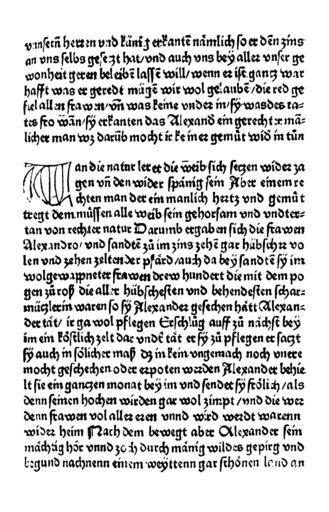 vnsern herren vnd küng erkantē nāmlich so er den zins
an vns selbs gesetzt hat/ vnd auch vns bey aller vnser ge
wonheit geren beleibē lassē will/ wenn er ist gantz war
hafft was er geredt mügē wir wol gelaubē/ die red ge
fiel allen frawen/ vō was keine vnder in/ sy was des ra-
tes fro wān/ sy erkanten das Alexand ein gerechter mā-
licher man wz darūb mocht ir keiner gemüt wid in tūn
Wan die natur leret die weib sich setzen wider za
gen vn̄ den wider spänig sein Aber einem re
chten man der ein manlich hertz vnd gemüt
tregt dem müssen alle weib sein gehorsam vnd vnder-
tan von rechter natur Darumb ergaben sich die frawen
Alexandro/ vnd sandtē zū im zins zehē gar hübscher vo
len vnd zehen zelten der pfärd/ auch da bey sandtē sy im
wolgewapneter frawen drew hundert die mit dem po
gen zū roß die aller hübschesten vnd behendesten schar-
mützlerin waren so sy Alexander gesechen hätt Alexan-
der tät/ ir ga wol pflegen Erschlūg auff zū nächst bey
im ein köstlich zelt dar vndē tät er sy zū pflegen er satzt
sy auch in sölicher maß dz in kein vngemach noch vnere
mocht geschechen oder erpoten werden Alexander behie
lt sie ein gantzen monat bey im vnd sendet sy frölich/ als
denn seinen hochen wirden gar wol zimpt/ vnd die wer
den frawen vol aller eren vnnd wird werdt warenn
wider heim Nach dem bewegt aber Alexander sein
mächtig hör vnnd zoch durch mānig wildes gepirg vnd
kam nachnenn einem weyttenn gar schönen land an